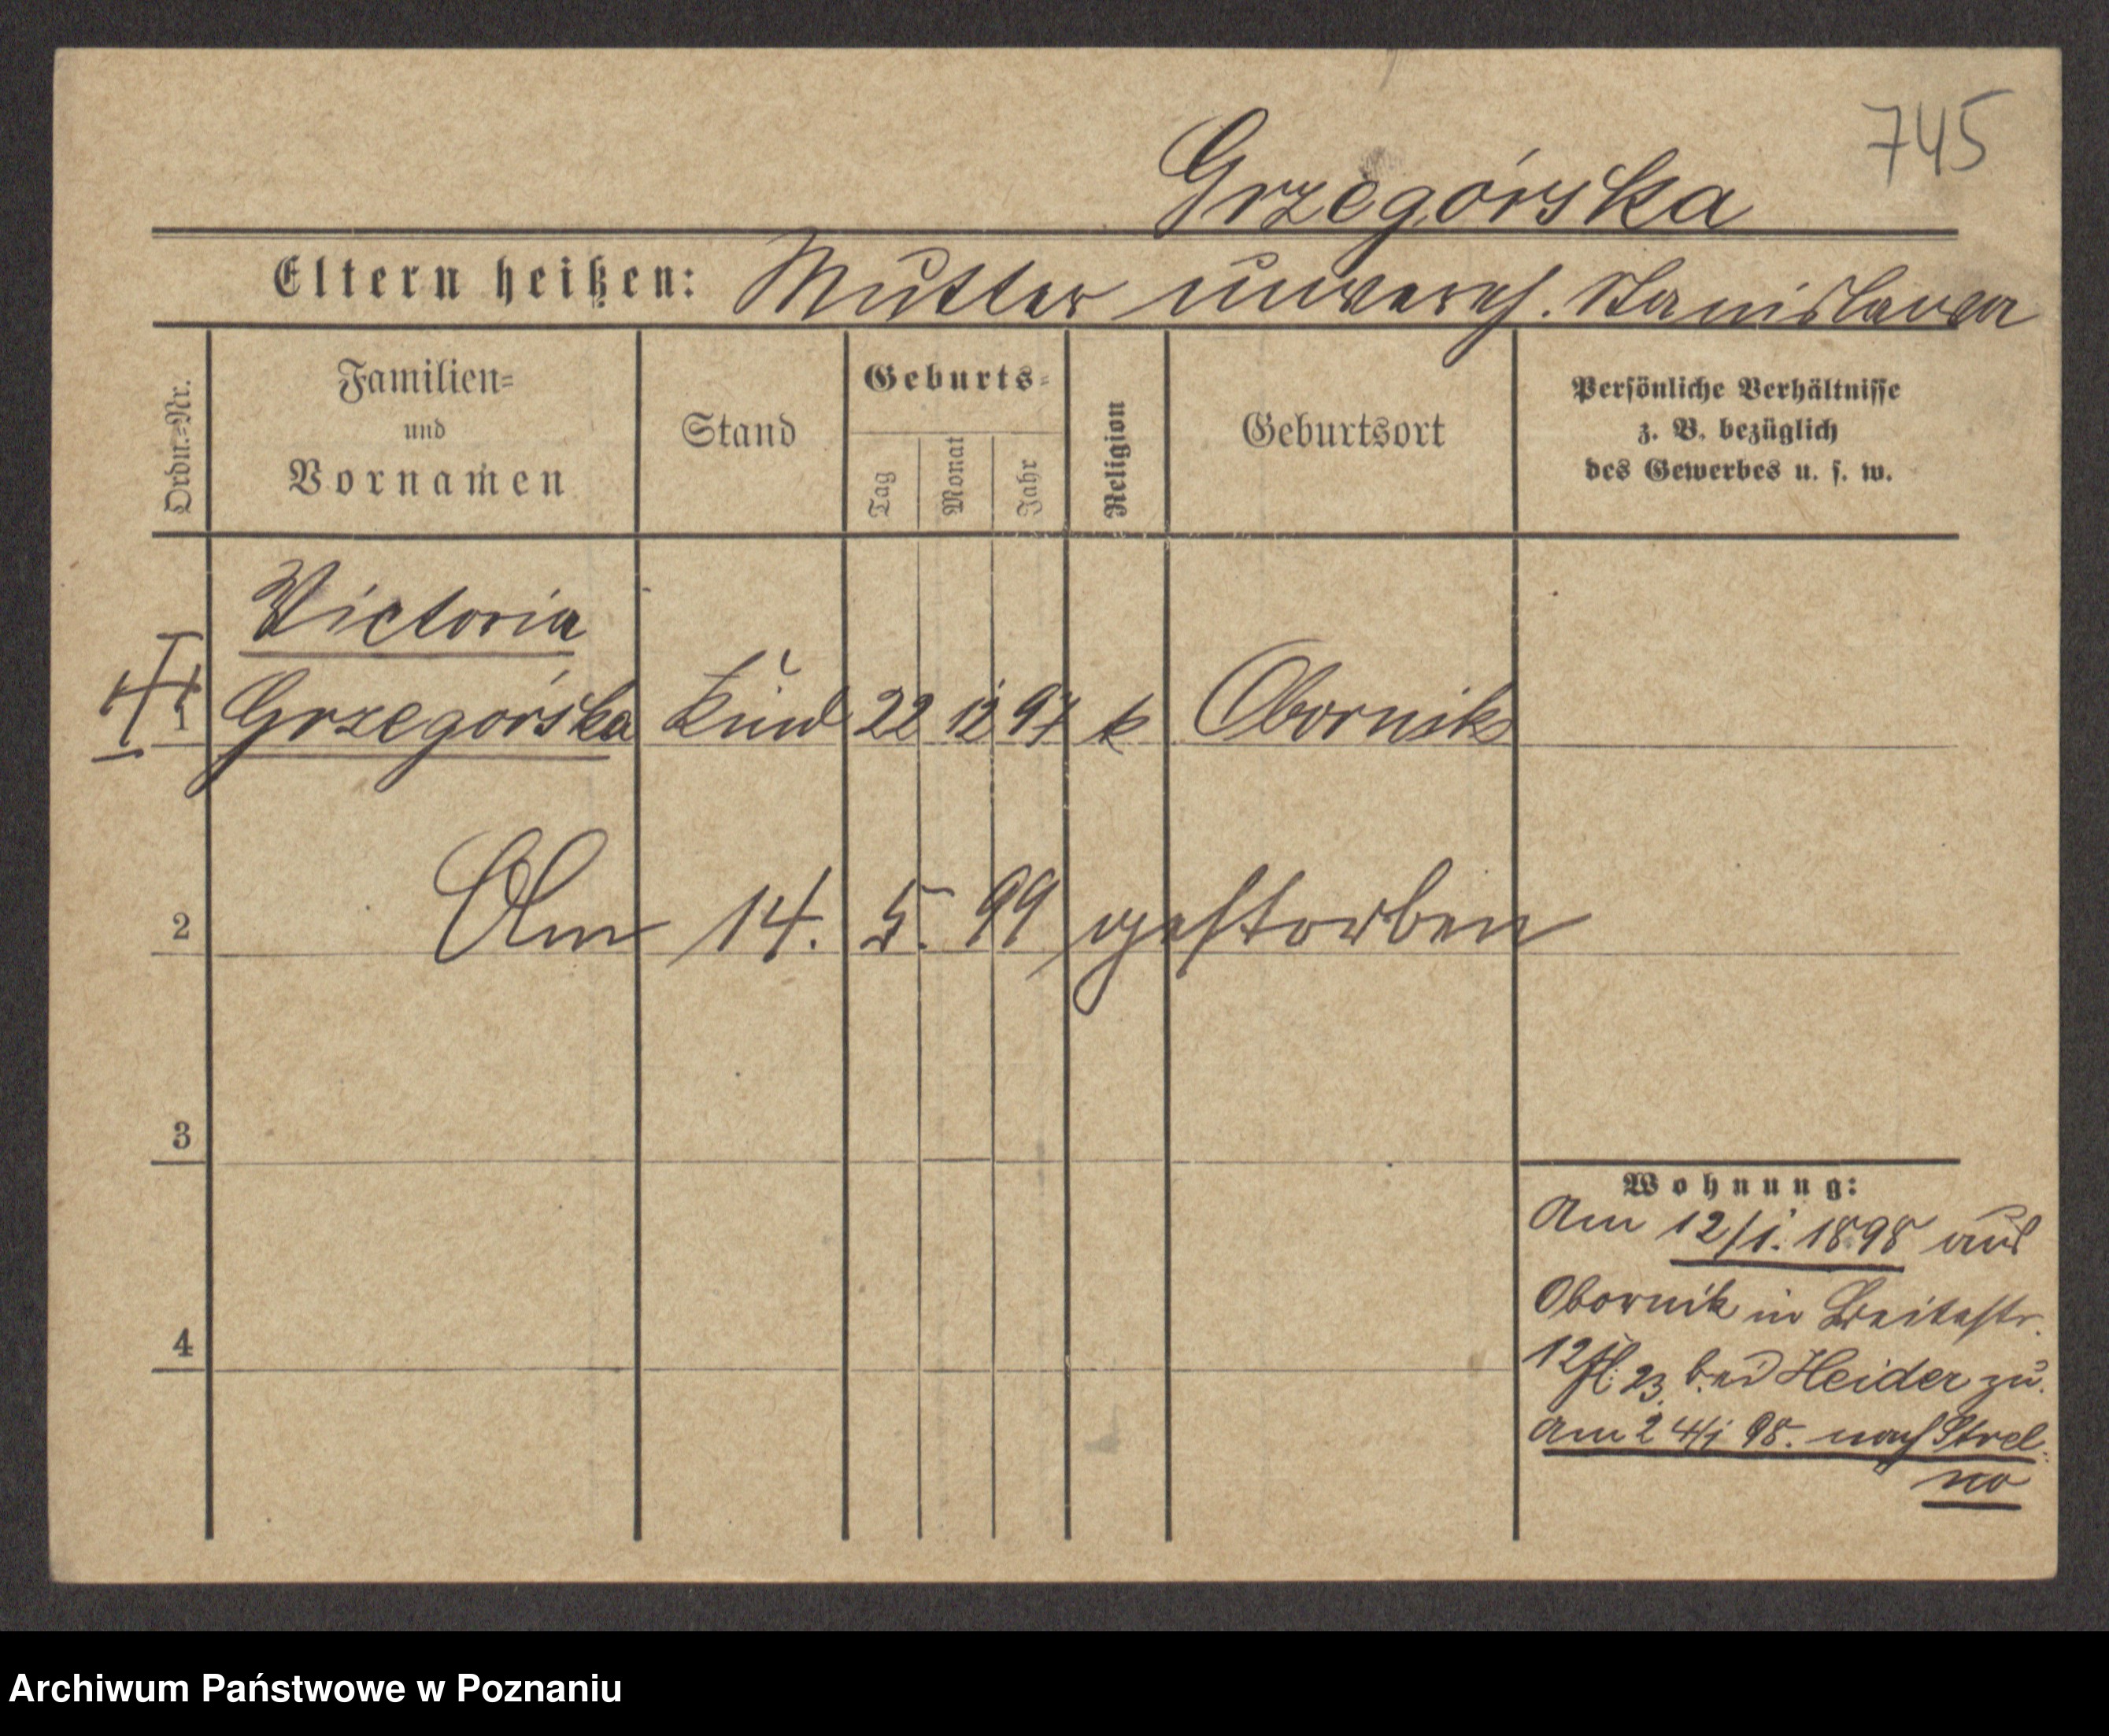 745
Grzegórska
Eltern heißen: Mutter unvereh. Stanislawa
Ordn.-Nr.
Familien-
und
Vornamen
Stand
Geburts-
Tag
Monat
Jahr
Religion
Geburtsort
Persönliche Verhältnisse
z. B. bezüglich
des Gewerbes u. s. w.
Victoria
1 Grzegórska Kind 22 12 97 k Obornik
2 Am 14. 5. 99 gestorben
3
4
Wohnung:
Am 12/1. 1898 aus
Obornik in Breitestr.
12 23 bei Heider zu.
Am 24/1 98. nach Strel-
no
Archiwum Państwowe w Poznaniu